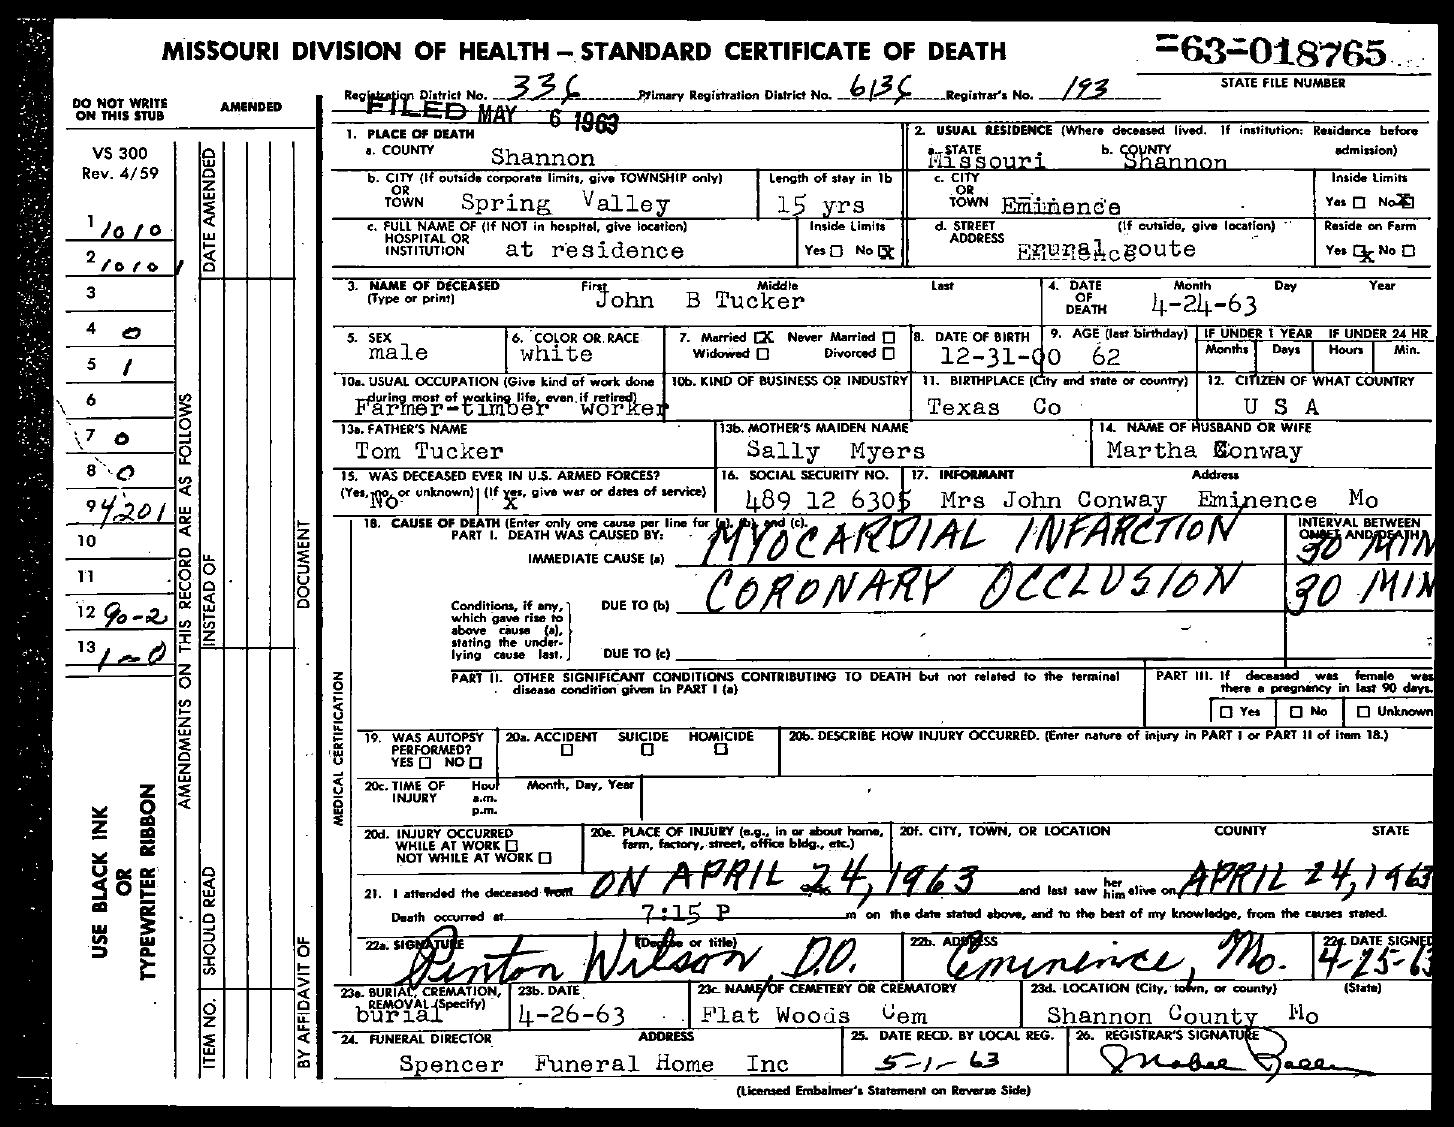 MISSOURI DIVISION OF HEALTH – STANDARD CERTIFICATE OF DEATH
=63=018765
STATE FILE NUMBER
DO NOT WRITE ON THIS STUB
AMENDED
Registration District No. 336 Primary Registration District No. 6136 Registrar's No. 193
FILED MAY 6 1963
VS 300
Rev. 4/59
1 1010
2 1010 1
3
4 0
5 1
6
7 0
8 0
9 4201
10
11
12 90-2
13 1-0
USE BLACK INK
OR
TYPEWRITER RIBBON
AMENDMENTS ON THIS RECORD ARE AS FOLLOWS
DATE AMENDED
INSTEAD OF
SHOULD READ
ITEM NO.
DOCUMENT
BY AFFIDAVIT OF
MEDICAL CERTIFICATION
1. PLACE OF DEATH
a. COUNTY Shannon
2. USUAL RESIDENCE (Where deceased lived. If institution: Residence before admission)
a. STATE Missouri b. COUNTY Shannon
b. CITY (If outside corporate limits, give TOWNSHIP only)
OR
TOWN Spring Valley
Length of stay in 1b
15 yrs
c. CITY
OR
TOWN Eminence
Inside Limits
Yes No X
c. FULL NAME OF (If NOT in hospital, give location)
HOSPITAL OR
INSTITUTION at residence
Inside Limits
Yes No X
d. STREET ADDRESS (If outside, give location)
route
Reside on Farm
Yes X No
3. NAME OF DECEASED
(Type or print)
First Middle Last
John B Tucker
4. DATE OF DEATH Month Day Year
4-24-63
5. SEX
male
6. COLOR OR RACE
white
7. Married X Never Married
Widowed Divorced
8. DATE OF BIRTH
12-31-00
9. AGE (last birthday)
62
IF UNDER 1 YEAR IF UNDER 24 HR
Months Days Hours Min.
10a. USUAL OCCUPATION (Give kind of work done during most of working life, even if retired)
Farmer-timber worker
10b. KIND OF BUSINESS OR INDUSTRY
11. BIRTHPLACE (City and state or country)
Texas Co
12. CITIZEN OF WHAT COUNTRY
U S A
13a. FATHER'S NAME
Tom Tucker
13b. MOTHER'S MAIDEN NAME
Sally Myers
14. NAME OF HUSBAND OR WIFE
Martha Conway
15. WAS DECEASED EVER IN U.S. ARMED FORCES?
(Yes, no, or unknown) (If yes, give war or dates of service)
No X
16. SOCIAL SECURITY NO.
489 12 6305
17. INFORMANT Address
Mrs John Conway Eminence Mo
18. CAUSE OF DEATH (Enter only one cause per line for (a), (b), and (c).
PART I. DEATH WAS CAUSED BY:
IMMEDIATE CAUSE (a) MYOCARDIAL INFARCTION
INTERVAL BETWEEN ONSET AND DEATH
30 MIN
Conditions, if any, which gave rise to above cause (a), stating the underlying cause last.
DUE TO (b) CORONARY OCCLUSION 30 MIN
DUE TO (c)
PART II. OTHER SIGNIFICANT CONDITIONS CONTRIBUTING TO DEATH but not related to the terminal disease condition given in PART I (a)
PART III. If deceased was female was there a pregnancy in last 90 days.
Yes No Unknown
19. WAS AUTOPSY PERFORMED?
YES NO
20a. ACCIDENT SUICIDE HOMICIDE
20b. DESCRIBE HOW INJURY OCCURRED. (Enter nature of injury in PART I or PART II of item 18.)
20c. TIME OF INJURY Hour a.m. p.m. Month, Day, Year
20d. INJURY OCCURRED
WHILE AT WORK
NOT WHILE AT WORK
20e. PLACE OF INJURY (e.g., in or about home, farm, factory, street, office bldg., etc.)
20f. CITY, TOWN, OR LOCATION COUNTY STATE
21. I attended the deceased from ON APRIL 24, 1963 and last saw her him alive on APRIL 24, 1963
Death occurred at 7:15 P m on the date stated above, and to the best of my knowledge, from the causes stated.
22a. SIGNATURE (Degree or title)
Wilson, D.O.
22b. ADDRESS
Eminence, Mo.
22c. DATE SIGNED
4-25-63
23a. BURIAL, CREMATION, REMOVAL (Specify)
burial
23b. DATE
4-26-63
23c. NAME OF CEMETERY OR CREMATORY
Flat Woods Cem
23d. LOCATION (City, town, or county) (State)
Shannon County Mo
24. FUNERAL DIRECTOR ADDRESS
Spencer Funeral Home Inc
25. DATE RECD. BY LOCAL REG.
5-1-63
26. REGISTRAR'S SIGNATURE
Mabel
(Licensed Embalmer's Statement on Reverse Side)